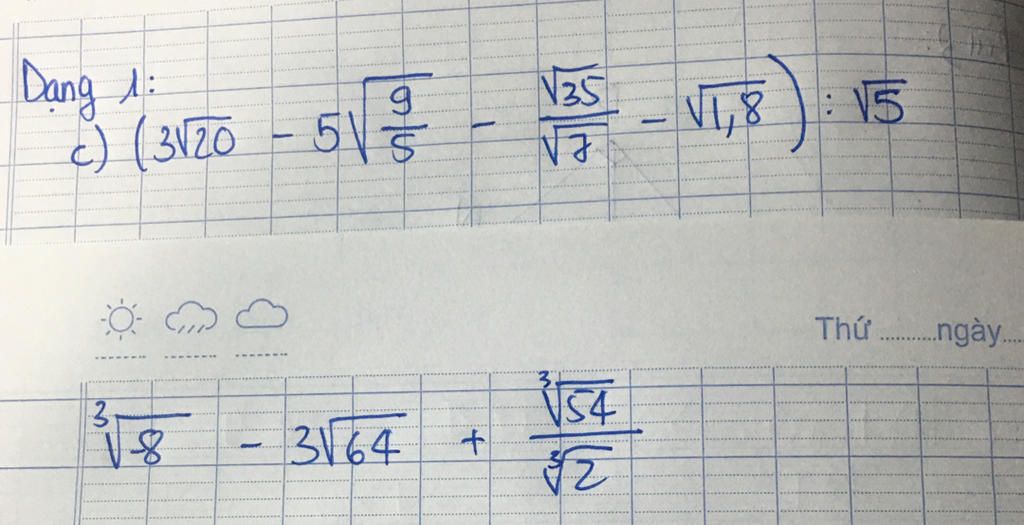 Dạng 1:
c) (3√20 - 5√(9/5) - √35/√7 - √1,8) : √5
Thứ ...........ngày.....
∛-8 - 3√64 + ∛54/∛2